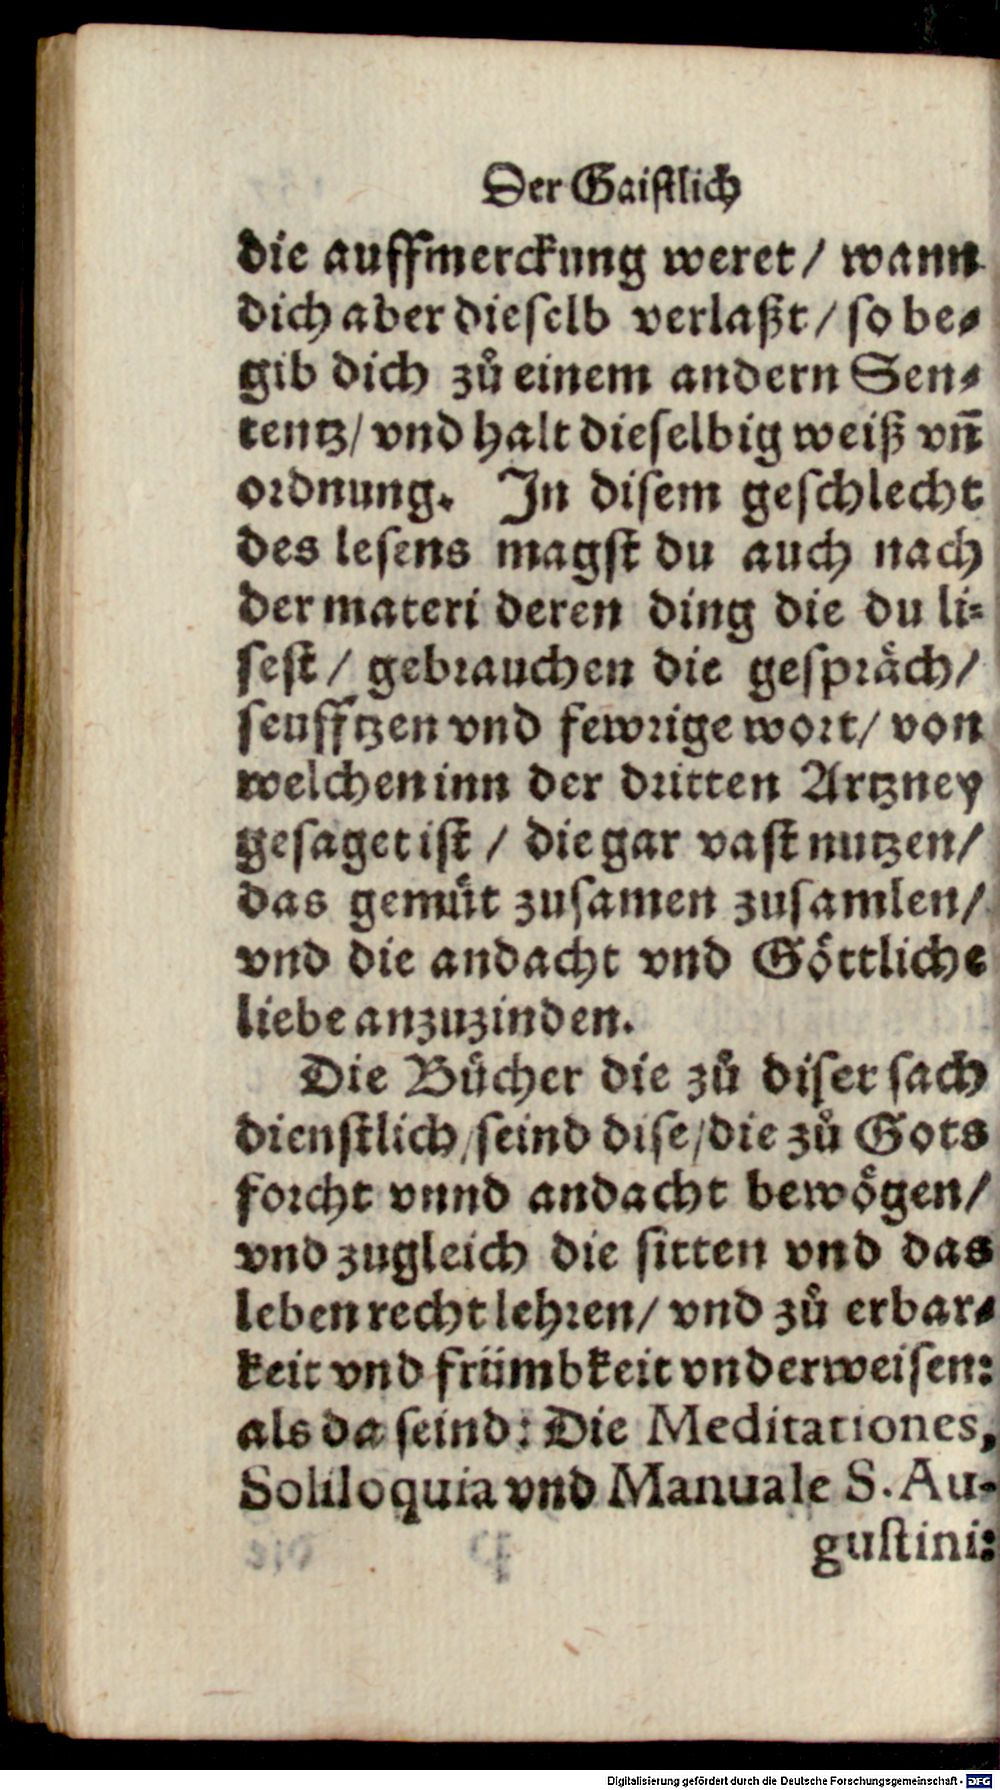 Der Gaiſtlich
die auffmerckung weret / wann
dich aber dieſelb verlaßt / ſo be⸗
gib dich zů einem andern Sen⸗
tentz / vnd halt dieſelbig weiß vñ
ordnung. In diſem geſchlecht
des leſens magſt du auch nach
der materi deren ding die du li⸗
ſeſt / gebrauchen die geſpraͤch /
ſeufftzen vnd fewrige wort / von
welchen inn der dritten Artzney
geſaget iſt / die gar vaſt nutzen /
das gemuͤt zuſamen zuſamlen /
vnd die andacht vnd Goͤttliche
liebe anzuzinden.
Die Buͤcher die zů diſer ſach
dienſtlich / ſeind diſe / die zů Gots
forcht vnnd andacht bewoͤgen /
vnd zugleich die ſitten vnd das
leben recht lehren / vnd zů erbar⸗
keit vnd fruͤmbkeit vnderweiſen:
als da ſeind: Die Meditationes,
Soliloquia vnd Manuale S. Au-
guſtini:
Digitalisierung gefördert durch die Deutsche Forschungsgemeinschaft - DFG